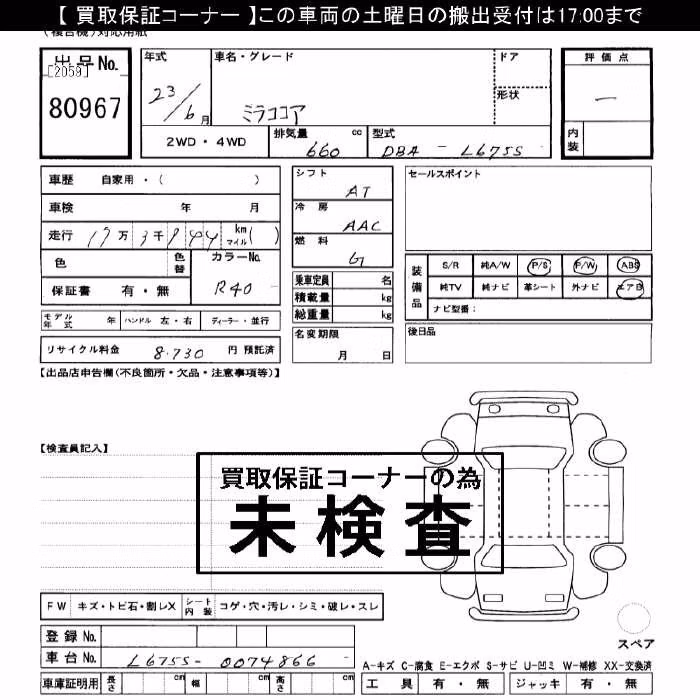 【 買取保証コーナー 】この車両の土曜日の搬出受付は17:00まで
(複合機)対応用紙
出品No.
[2059]
80967
年式
23/6月
車名・グレード
ミラココア
ドア
形状
評価点
—
内装
2WD・4WD
排気量 660 cc
型式 DBA - L675S
車歴 自家用・( )
車検 年 月
走行 万 千 km マイル( )
色
色替
カラーNo.
R40
保証書 有・無
モデル年式 年 ハンドル 左・右 ディーラー・並行
リサイクル料金 8,730 円 預託済
シフト AT
冷房 AAC
燃料 G
乗車定員 名
積載量 kg
総重量 kg
名変期限
月 日
セールスポイント
装備品
S/R 純A/W P/S P/W ABS
純TV 純ナビ 革シート 外ナビ エアB
ナビ型番:
後日品
【出品店申告欄(不良箇所・欠品・注意事項等)】
【検査員記入】
買取保証コーナーの為
未検査
FW キズ・トビ石・割レX シート内装 コゲ・穴・汚レ・シミ・破レ・スレ
登録No.
車台No. L675S- 0074866
車庫証明用 長さ cm 幅 cm 高さ cm
スペア
A-キズ C-腐食 E-エクボ S-サビ U-凹ミ W-補修 XX-交換済
工具 有・無 ジャッキ 有・無